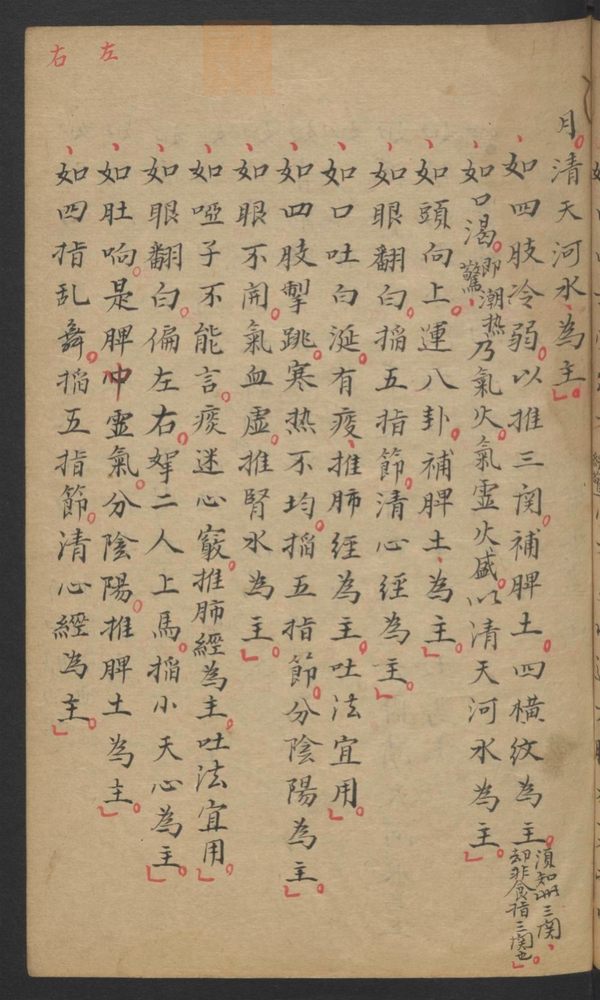 月。清天河水、為主。
如四肢冷弱。以推三関。補脾土。四橫紋為主。須知此三関、却非食指三関也。
如口渴。即潮热驚、乃氣火。氣靈火盛。以清天河水為主。
如頭向上。運八卦。補脾土、為主。
如眼翻白。搯五指節。清心經為主。
如口吐白涎。有痰、推肺経為主。吐法宜用。
如四肢掣跳。寒热不均。搯五指節。分陰陽為主。
如眼不開。氣血虛。推腎水為主。
如啞子不能言。痰迷心竅。推肺經為主。吐法宜用。
如眼翻白。偏左右。二人上馬。搯小天心為主。
如肚响。是脾冲靈氣。分陰陽。推脾土為主。
如四指乱舞。搯五指節。清心經為主。
左
右